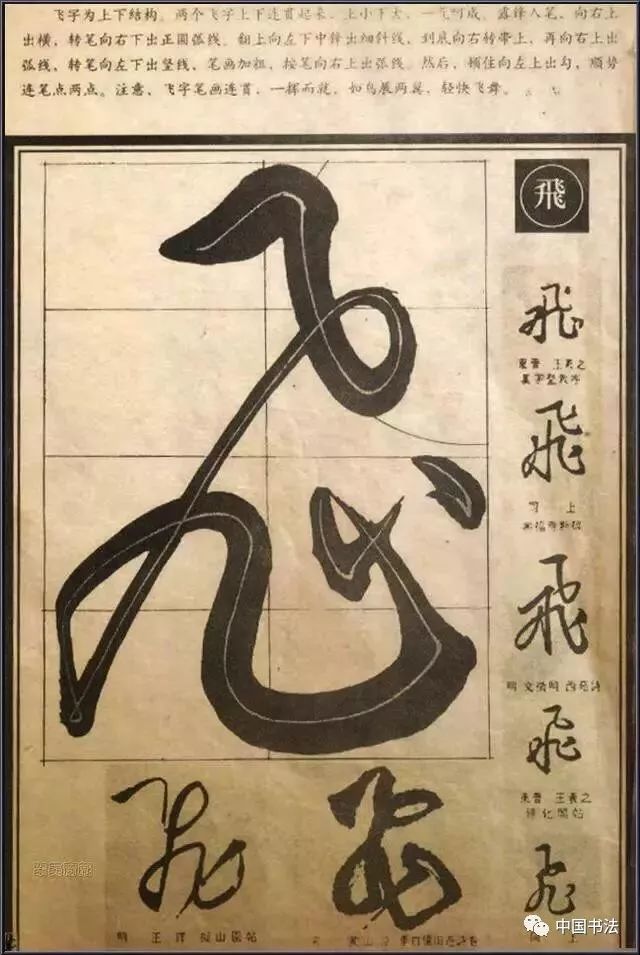 飞字为上下结构。两个飞字上下连首起来，上小下大，一气呵成。露锋入笔，向右上
出横，转笔向右下出正圆弧线。翻上向左下中锋出细斜线，到底向右转带上，再向右上出
弧线，转笔向左下出竖线，笔画加粗，按笔向右上出弧线。然后，顿住向左上出勾，顺势
连笔点两点。注意，飞字笔画连首，一挥而就，如鸟展两翼，轻快飞舞。
飛
飛
飛
東晋 王羲之
飛
同 上
飛
明 文徵明 西苑詩
飛
東晋 王羲之
淳化閣帖
飛
同 上
飛
明 王鐸 擬山園帖
飛
中国书法